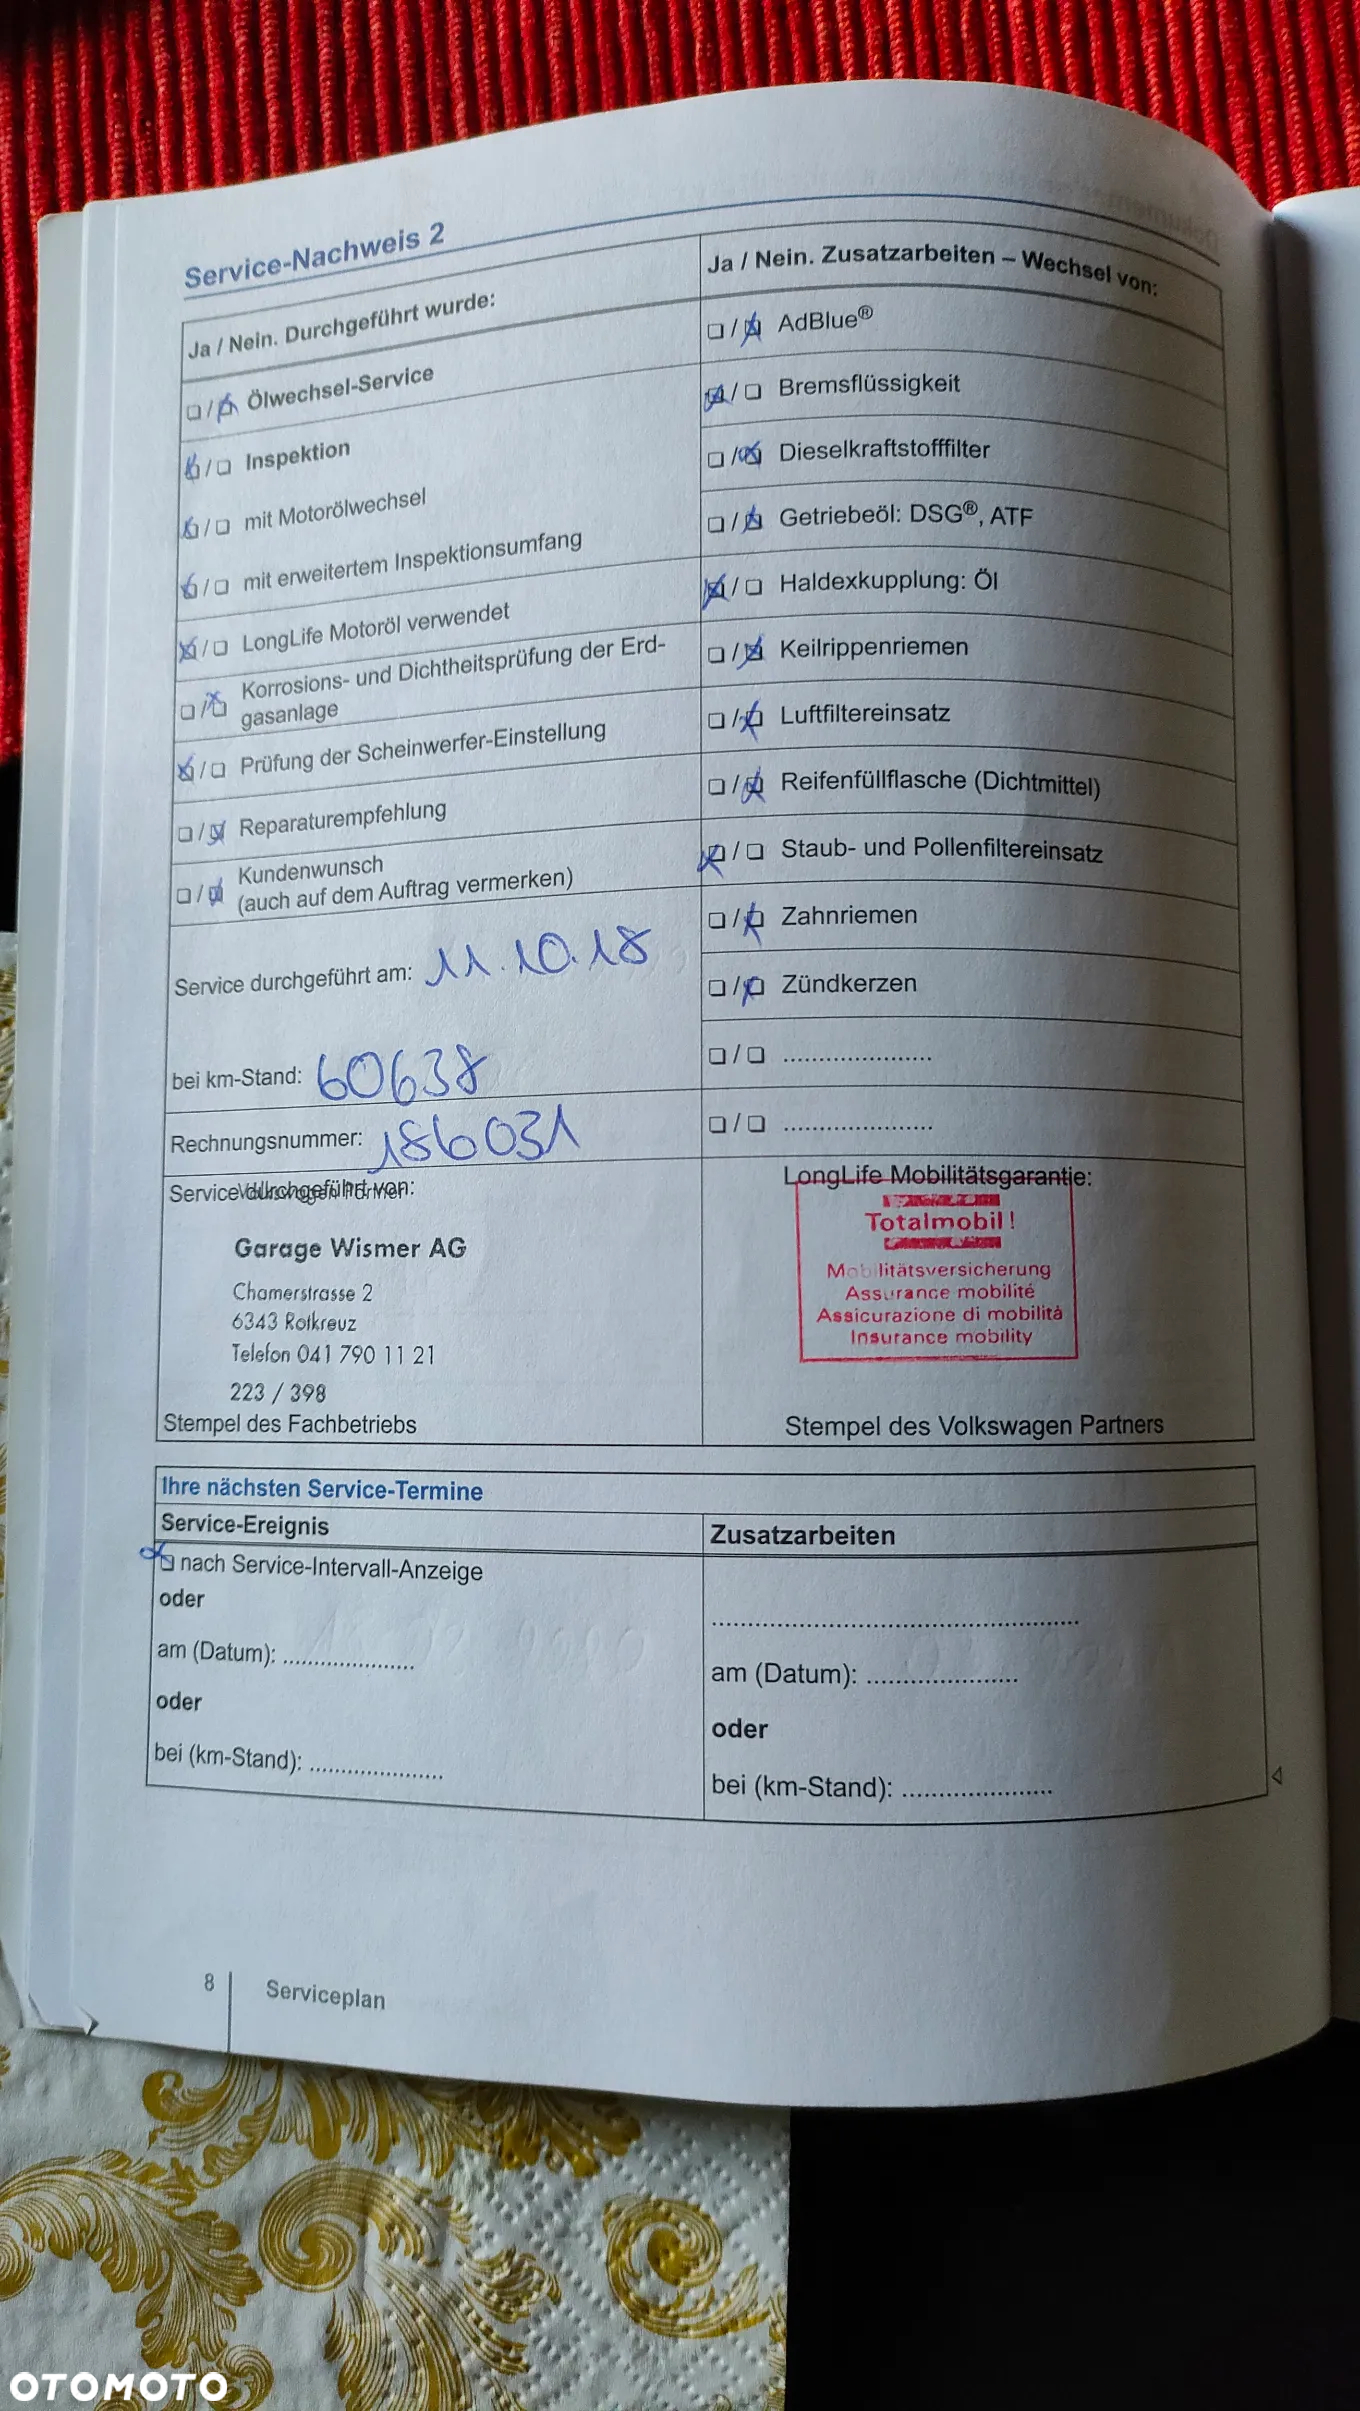 Service-Nachweis 2
Ja / Nein. Durchgeführt wurde:
❏ / ❏ Ölwechsel-Service
❏ / ❏ Inspektion
❏ / ❏ mit Motorölwechsel
❏ / ❏ mit erweitertem Inspektionsumfang
❏ / ❏ LongLife Motoröl verwendet
❏ / ❏ Korrosions- und Dichtheitsprüfung der Erd-
gasanlage
❏ / ❏ Prüfung der Scheinwerfer-Einstellung
❏ / ❏ Reparaturempfehlung
❏ / ❏ Kundenwunsch
(auch auf dem Auftrag vermerken)
Service durchgeführt am: 11.10.18
bei km-Stand: 60638
Rechnungsnummer: 186031
Service durchgeführt von:
Garage Wismer AG
Chamerstrasse 2
6343 Rotkreuz
Telefon 041 790 11 21
223 / 398
Stempel des Fachbetriebs
Ja / Nein. Zusatzarbeiten – Wechsel von:
❏ / ❏ AdBlue®
❏ / ❏ Bremsflüssigkeit
❏ / ❏ Dieselkraftstofffilter
❏ / ❏ Getriebeöl: DSG®, ATF
❏ / ❏ Haldexkupplung: Öl
❏ / ❏ Keilrippenriemen
❏ / ❏ Luftfiltereinsatz
❏ / ❏ Reifenfüllflasche (Dichtmittel)
❏ / ❏ Staub- und Pollenfiltereinsatz
❏ / ❏ Zahnriemen
❏ / ❏ Zündkerzen
❏ / ❏ ......................
❏ / ❏ ......................
LongLife Mobilitätsgarantie:
Totalmobil!
Mobilitätsversicherung
Assurance mobilité
Assicurazione di mobilità
Insurance mobility
Stempel des Volkswagen Partners
Ihre nächsten Service-Termine
Service-Ereignis
❏ nach Service-Intervall-Anzeige
oder
am (Datum): ......................
oder
bei (km-Stand): ......................
Zusatzarbeiten
......................................................
am (Datum): ......................
oder
bei (km-Stand): ......................
8 Serviceplan
OTOMOTO